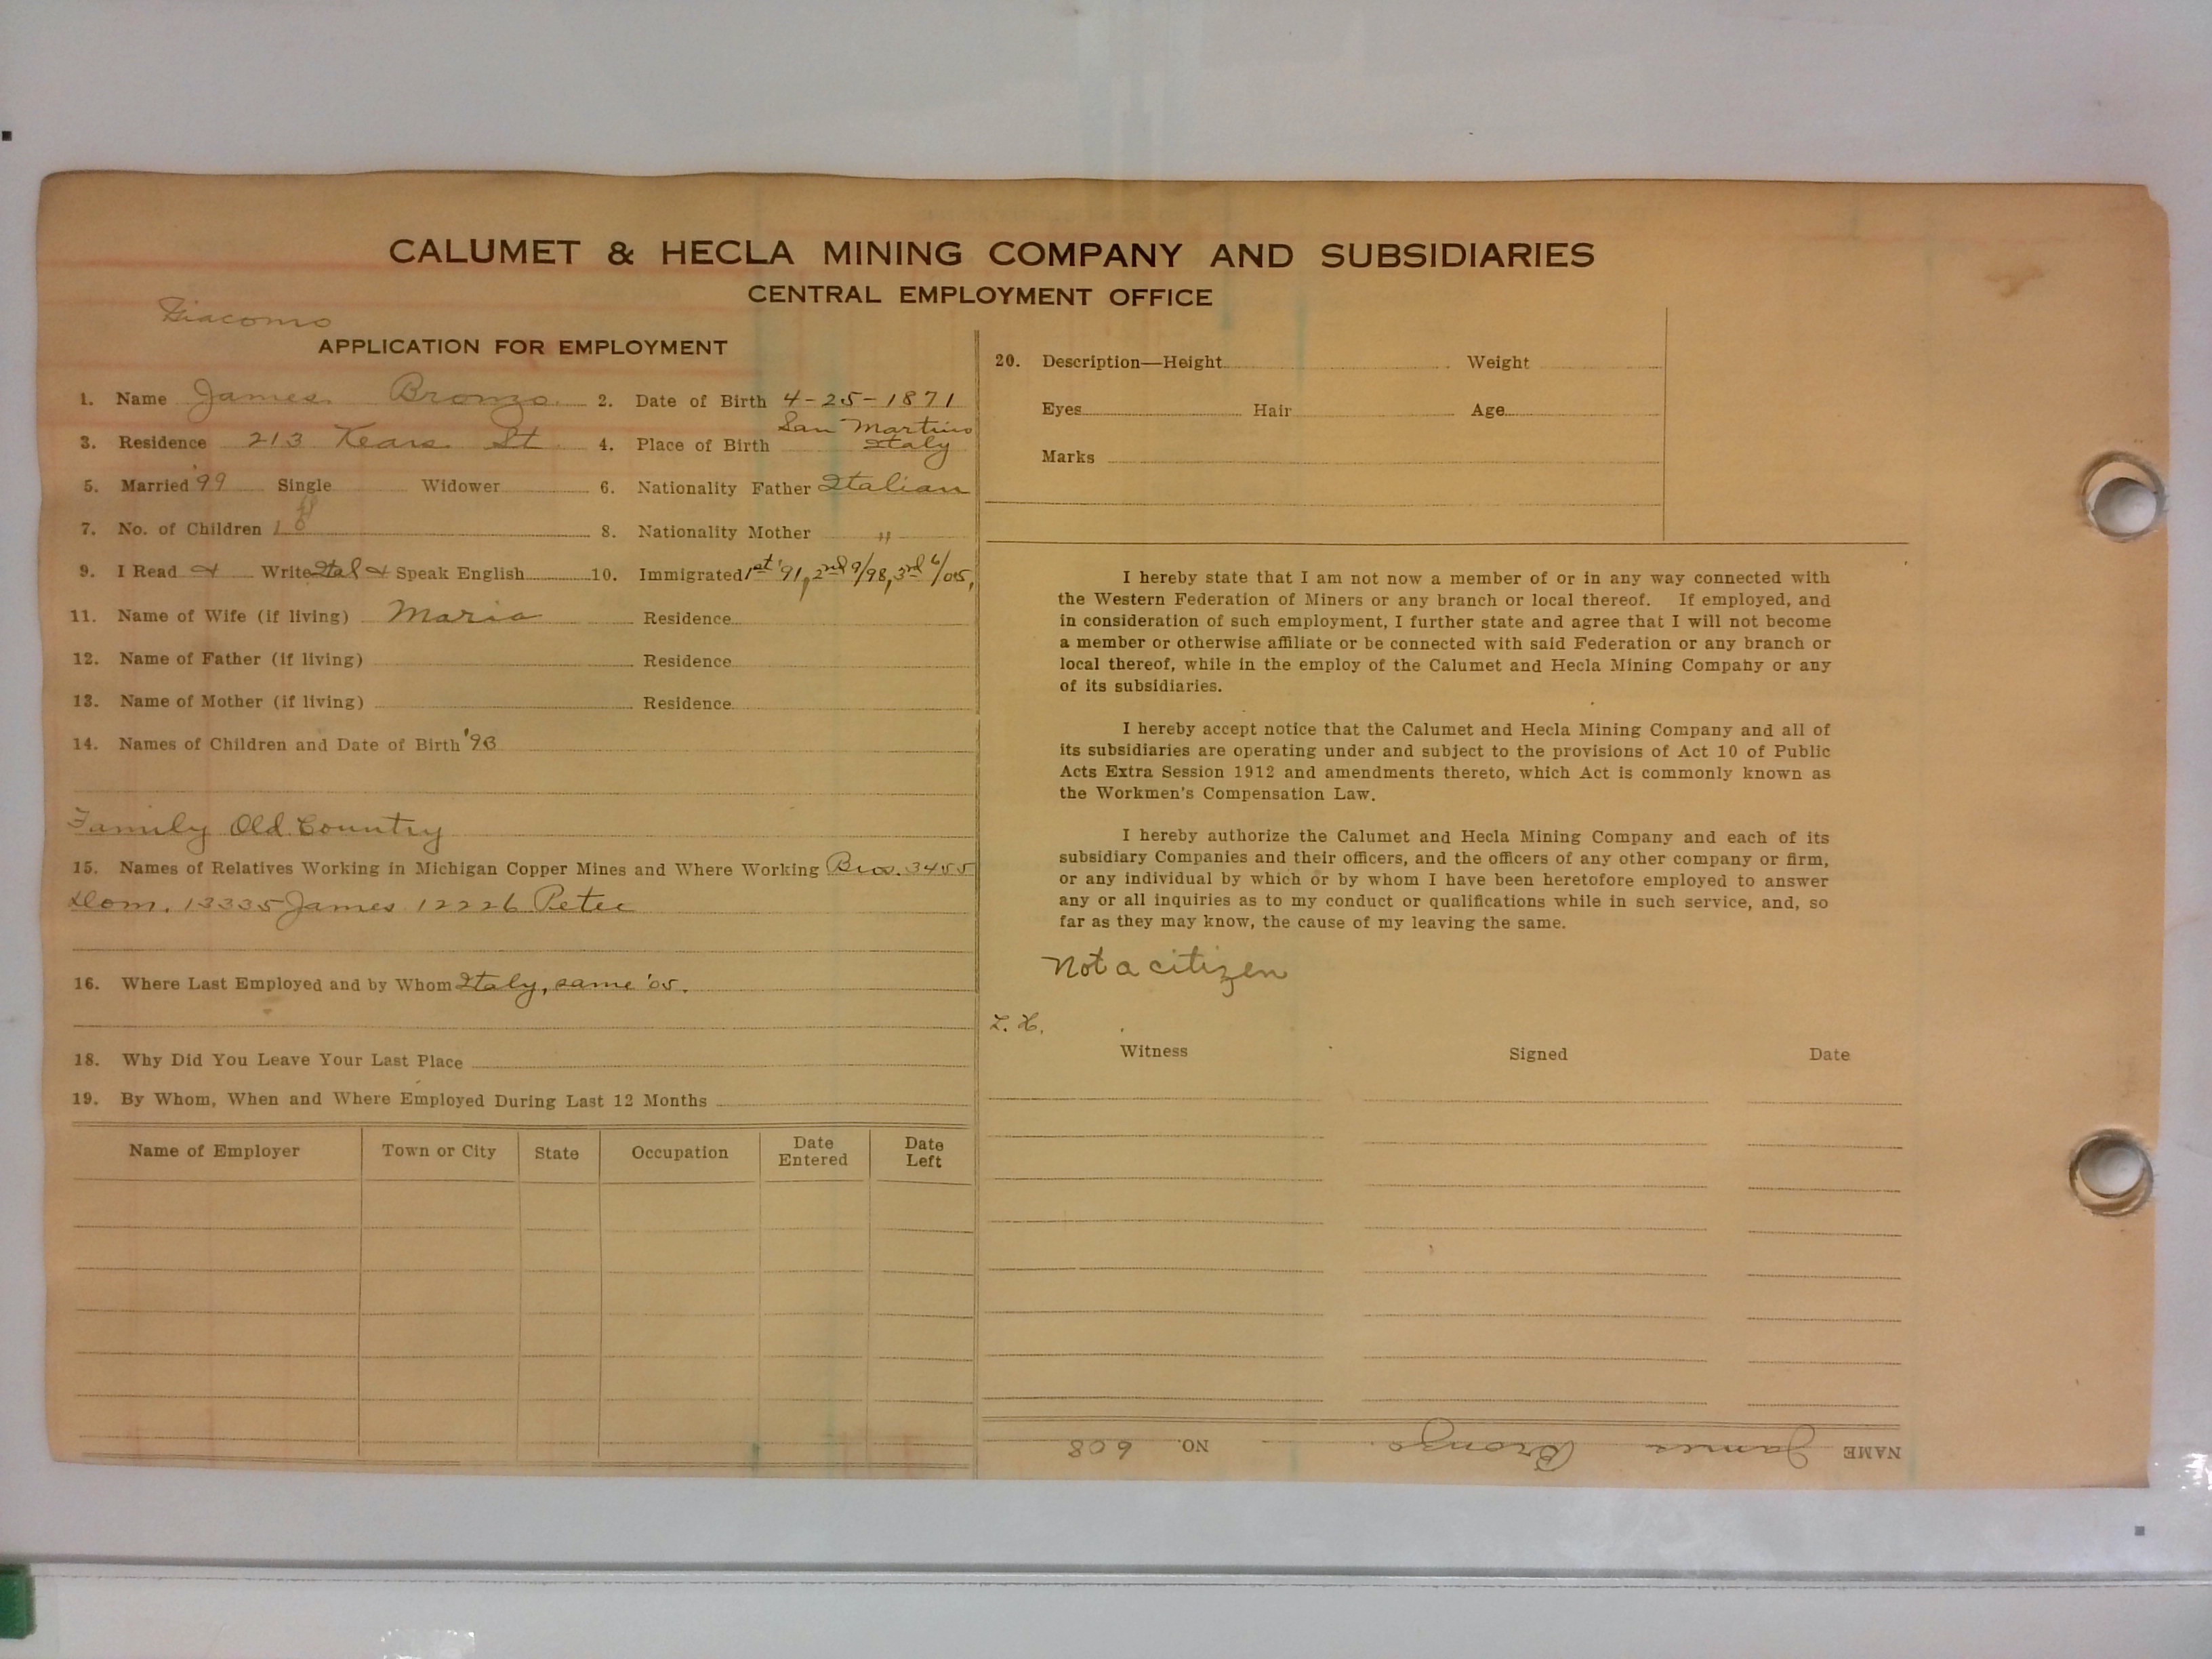 CALUMET & HECLA MINING COMPANY AND SUBSIDIARIES
CENTRAL EMPLOYMENT OFFICE
Giacomo
APPLICATION FOR EMPLOYMENT
1. Name James Bronzo 2. Date of Birth 4-25-1871
3. Residence 213 Kears. St 4. Place of Birth San Martino Italy
5. Married '99 Single Widower 6. Nationality Father Italian
7. No. of Children 8. Nationality Mother "
9. I Read & Write Ital & Speak English 10. Immigrated 1st '91, 2nd 9/98, 3rd 6/05,
11. Name of Wife (if living) Maria Residence
12. Name of Father (if living) Residence
13. Name of Mother (if living) Residence
14. Names of Children and Date of Birth
Family Old Country
15. Names of Relatives Working in Michigan Copper Mines and Where Working Bros. 3455
Dom. 13335 James 12226 Peter
16. Where Last Employed and by Whom Italy, same '05.
18. Why Did You Leave Your Last Place
19. By Whom, When and Where Employed During Last 12 Months
Name of Employer Town or City State Occupation Date Entered Date Left
20. Description—Height Weight
Eyes Hair Age
Marks
I hereby state that I am not now a member of or in any way connected with
the Western Federation of Miners or any branch or local thereof. If employed, and
in consideration of such employment, I further state and agree that I will not become
a member or otherwise affiliate or be connected with said Federation or any branch or
local thereof, while in the employ of the Calumet and Hecla Mining Company or any
of its subsidiaries.
I hereby accept notice that the Calumet and Hecla Mining Company and all of
its subsidiaries are operating under and subject to the provisions of Act 10 of Public
Acts Extra Session 1912 and amendments thereto, which Act is commonly known as
the Workmen's Compensation Law.
I hereby authorize the Calumet and Hecla Mining Company and each of its
subsidiary Companies and their officers, and the officers of any other company or firm,
or any individual by which or by whom I have been heretofore employed to answer
any or all inquiries as to my conduct or qualifications while in such service, and, so
far as they may know, the cause of my leaving the same.
Not a citizen
Witness Signed Date
NAME James Bronzo. NO. 608